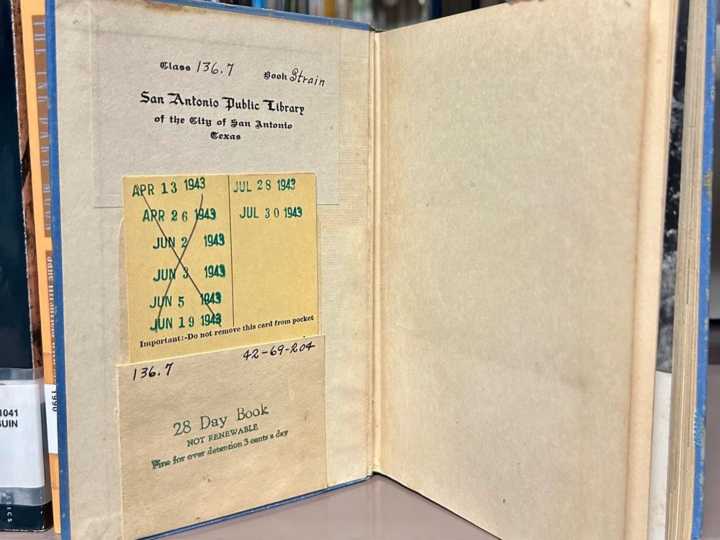 Class 136.7 Book Strain
San Antonio Public Library
of the City of San Antonio
Texas
APR 13 1943
APR 26 1943
JUN 2 1943
JUN 3 1943
JUN 5 1943
JUN 19 1943
JUL 28 1943
JUL 30 1943
Important:-Do not remove this card from pocket
136.7 42-69-204
28 Day Book
NOT RENEWABLE
Fine for over detention 3 cents a day
1041
GUIN
1990